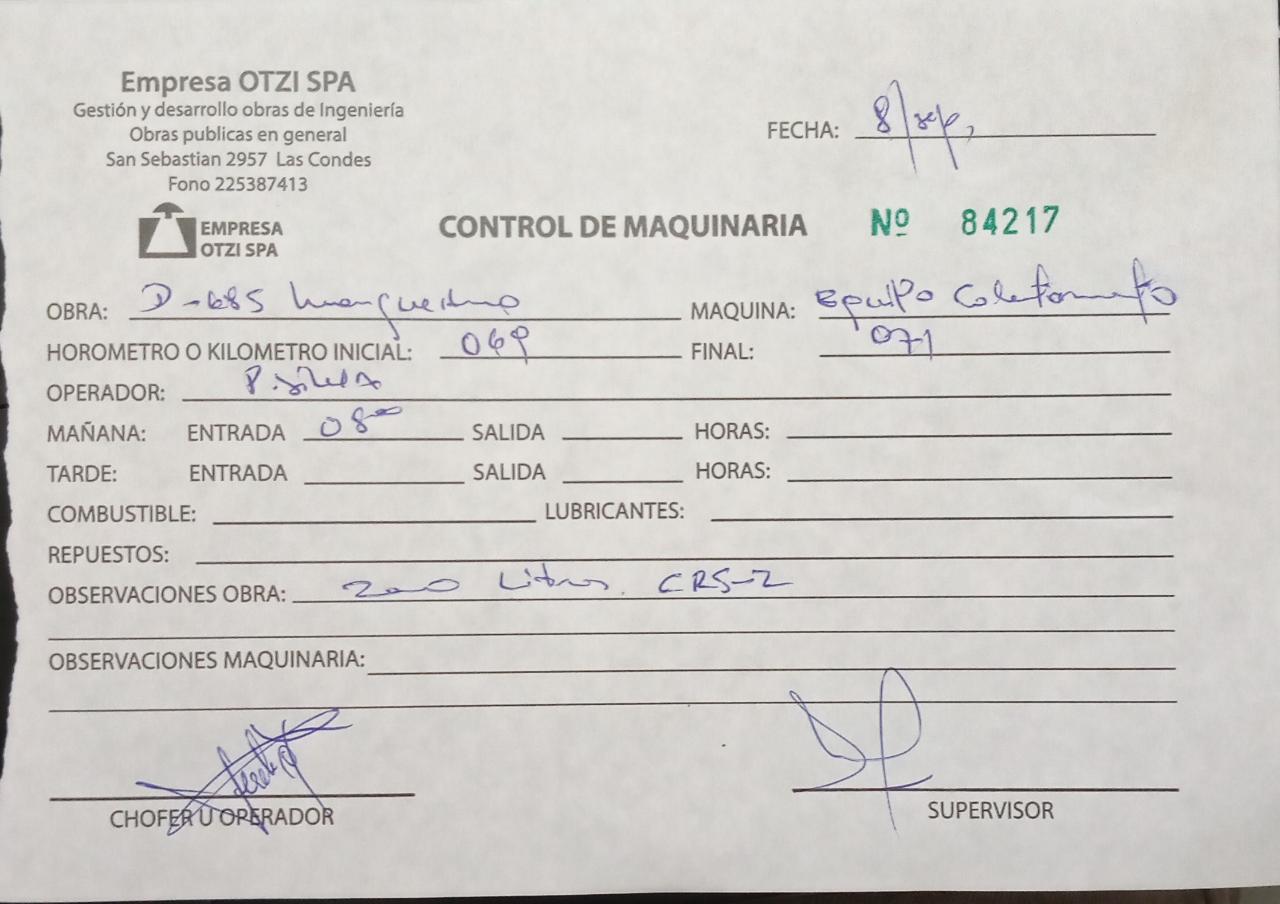 Empresa OTZI SPA
Gestión y desarrollo obras de Ingeniería
Obras publicas en general
San Sebastian 2957 Las Condes
Fono 225387413
FECHA: 8/sep,
EMPRESA
OTZI SPA
CONTROL DE MAQUINARIA Nº 84217
OBRA: D-685 MAQUINA: Equipo
HOROMETRO O KILOMETRO INICIAL: 069 FINAL: 071
OPERADOR: P. Silva
MAÑANA: ENTRADA 08⁰⁰ SALIDA HORAS:
TARDE: ENTRADA SALIDA HORAS:
COMBUSTIBLE: LUBRICANTES:
REPUESTOS:
OBSERVACIONES OBRA: 2000 Litros. CRS-2
OBSERVACIONES MAQUINARIA:
CHOFER U OPERADOR SUPERVISOR